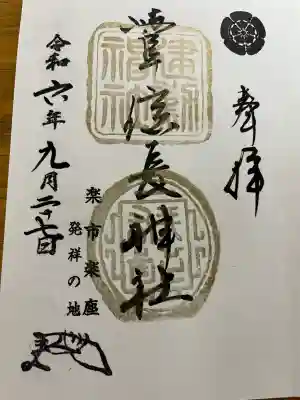 奉拝
建勲
神社
信長神社
楽市楽座
発祥の地
令和六年九月二十七日